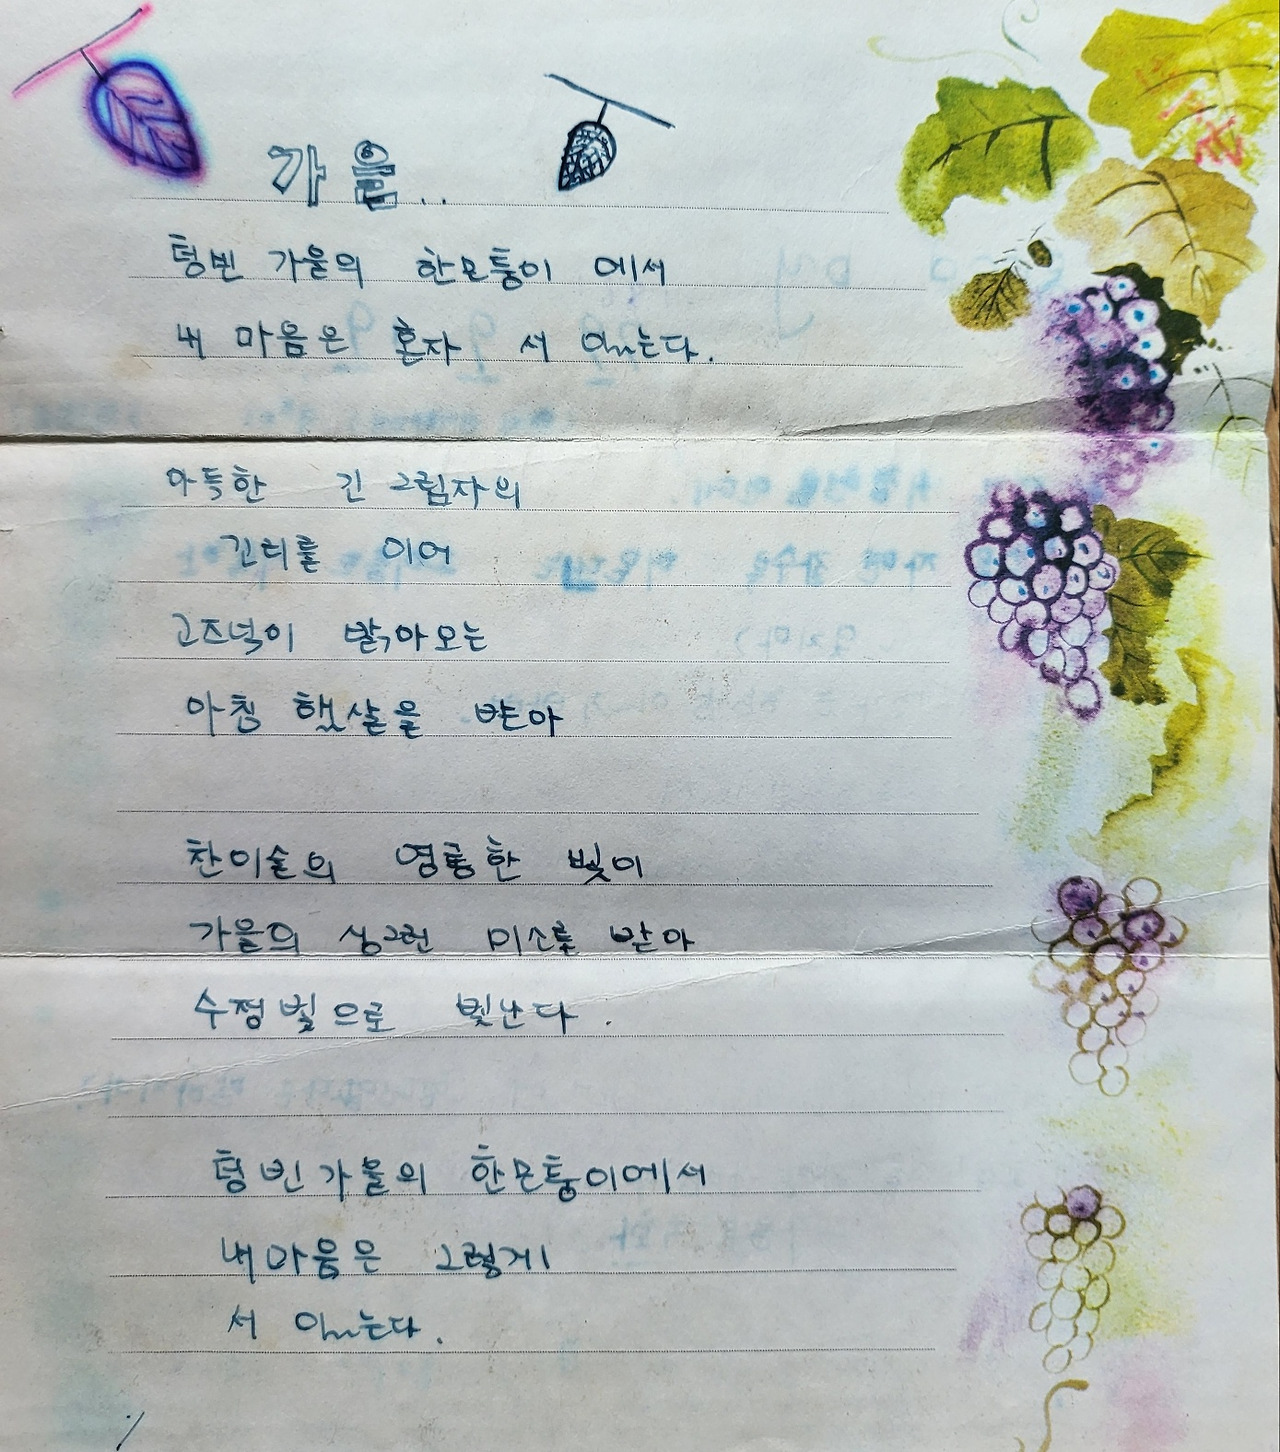 가을..
텅빈 가을의 한모퉁이 에서
내 마음은 혼자 서 있는다.
아득한 긴 그림자의
꼬리를 이어
고즈넉이 밝아오는
아침 햇살을 받아
찬이슬의 영롱한 빛이
가을의 싱그런 미소를 받아
수정빛으로 빛난다.
텅빈가을의 한모퉁이에서
내마음은 그렇게
서 있는다.